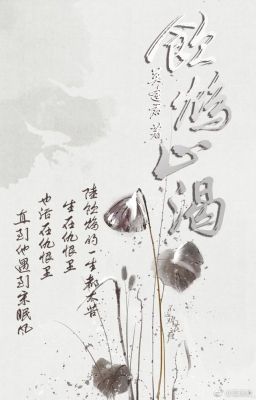 飲鴆止渴
著
陸飲鴆的一生都太苦
生在仇恨里
也活在仇恨里
直到他遇到宋眠风